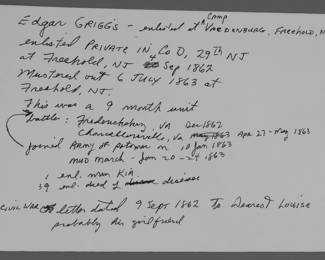 Edgar GRIGGS - enlisted at ^Camp VREDENBURG, Freehold, N
enlisted PRIVATE IN Co D, 29th NJ
at Freehold, NJ 4 Sep 1862
Mustered out 6 JULY 1863 at
Freehold, NJ.
This was a 9 month unit
battles: Fredericksburg, VA Dec 1862
Chancellorsville, VA May 1863 Apr 27 - May 1863
joined Army of Potomac in 10 Jan 1863
MUD March - Jan 20 - 24 1863
1 enl. man KIA
39 enl. died of disease disease
CIVIL WAR letter dated 9 Sept 1862 to Dearest Louise
probably his girlfriend